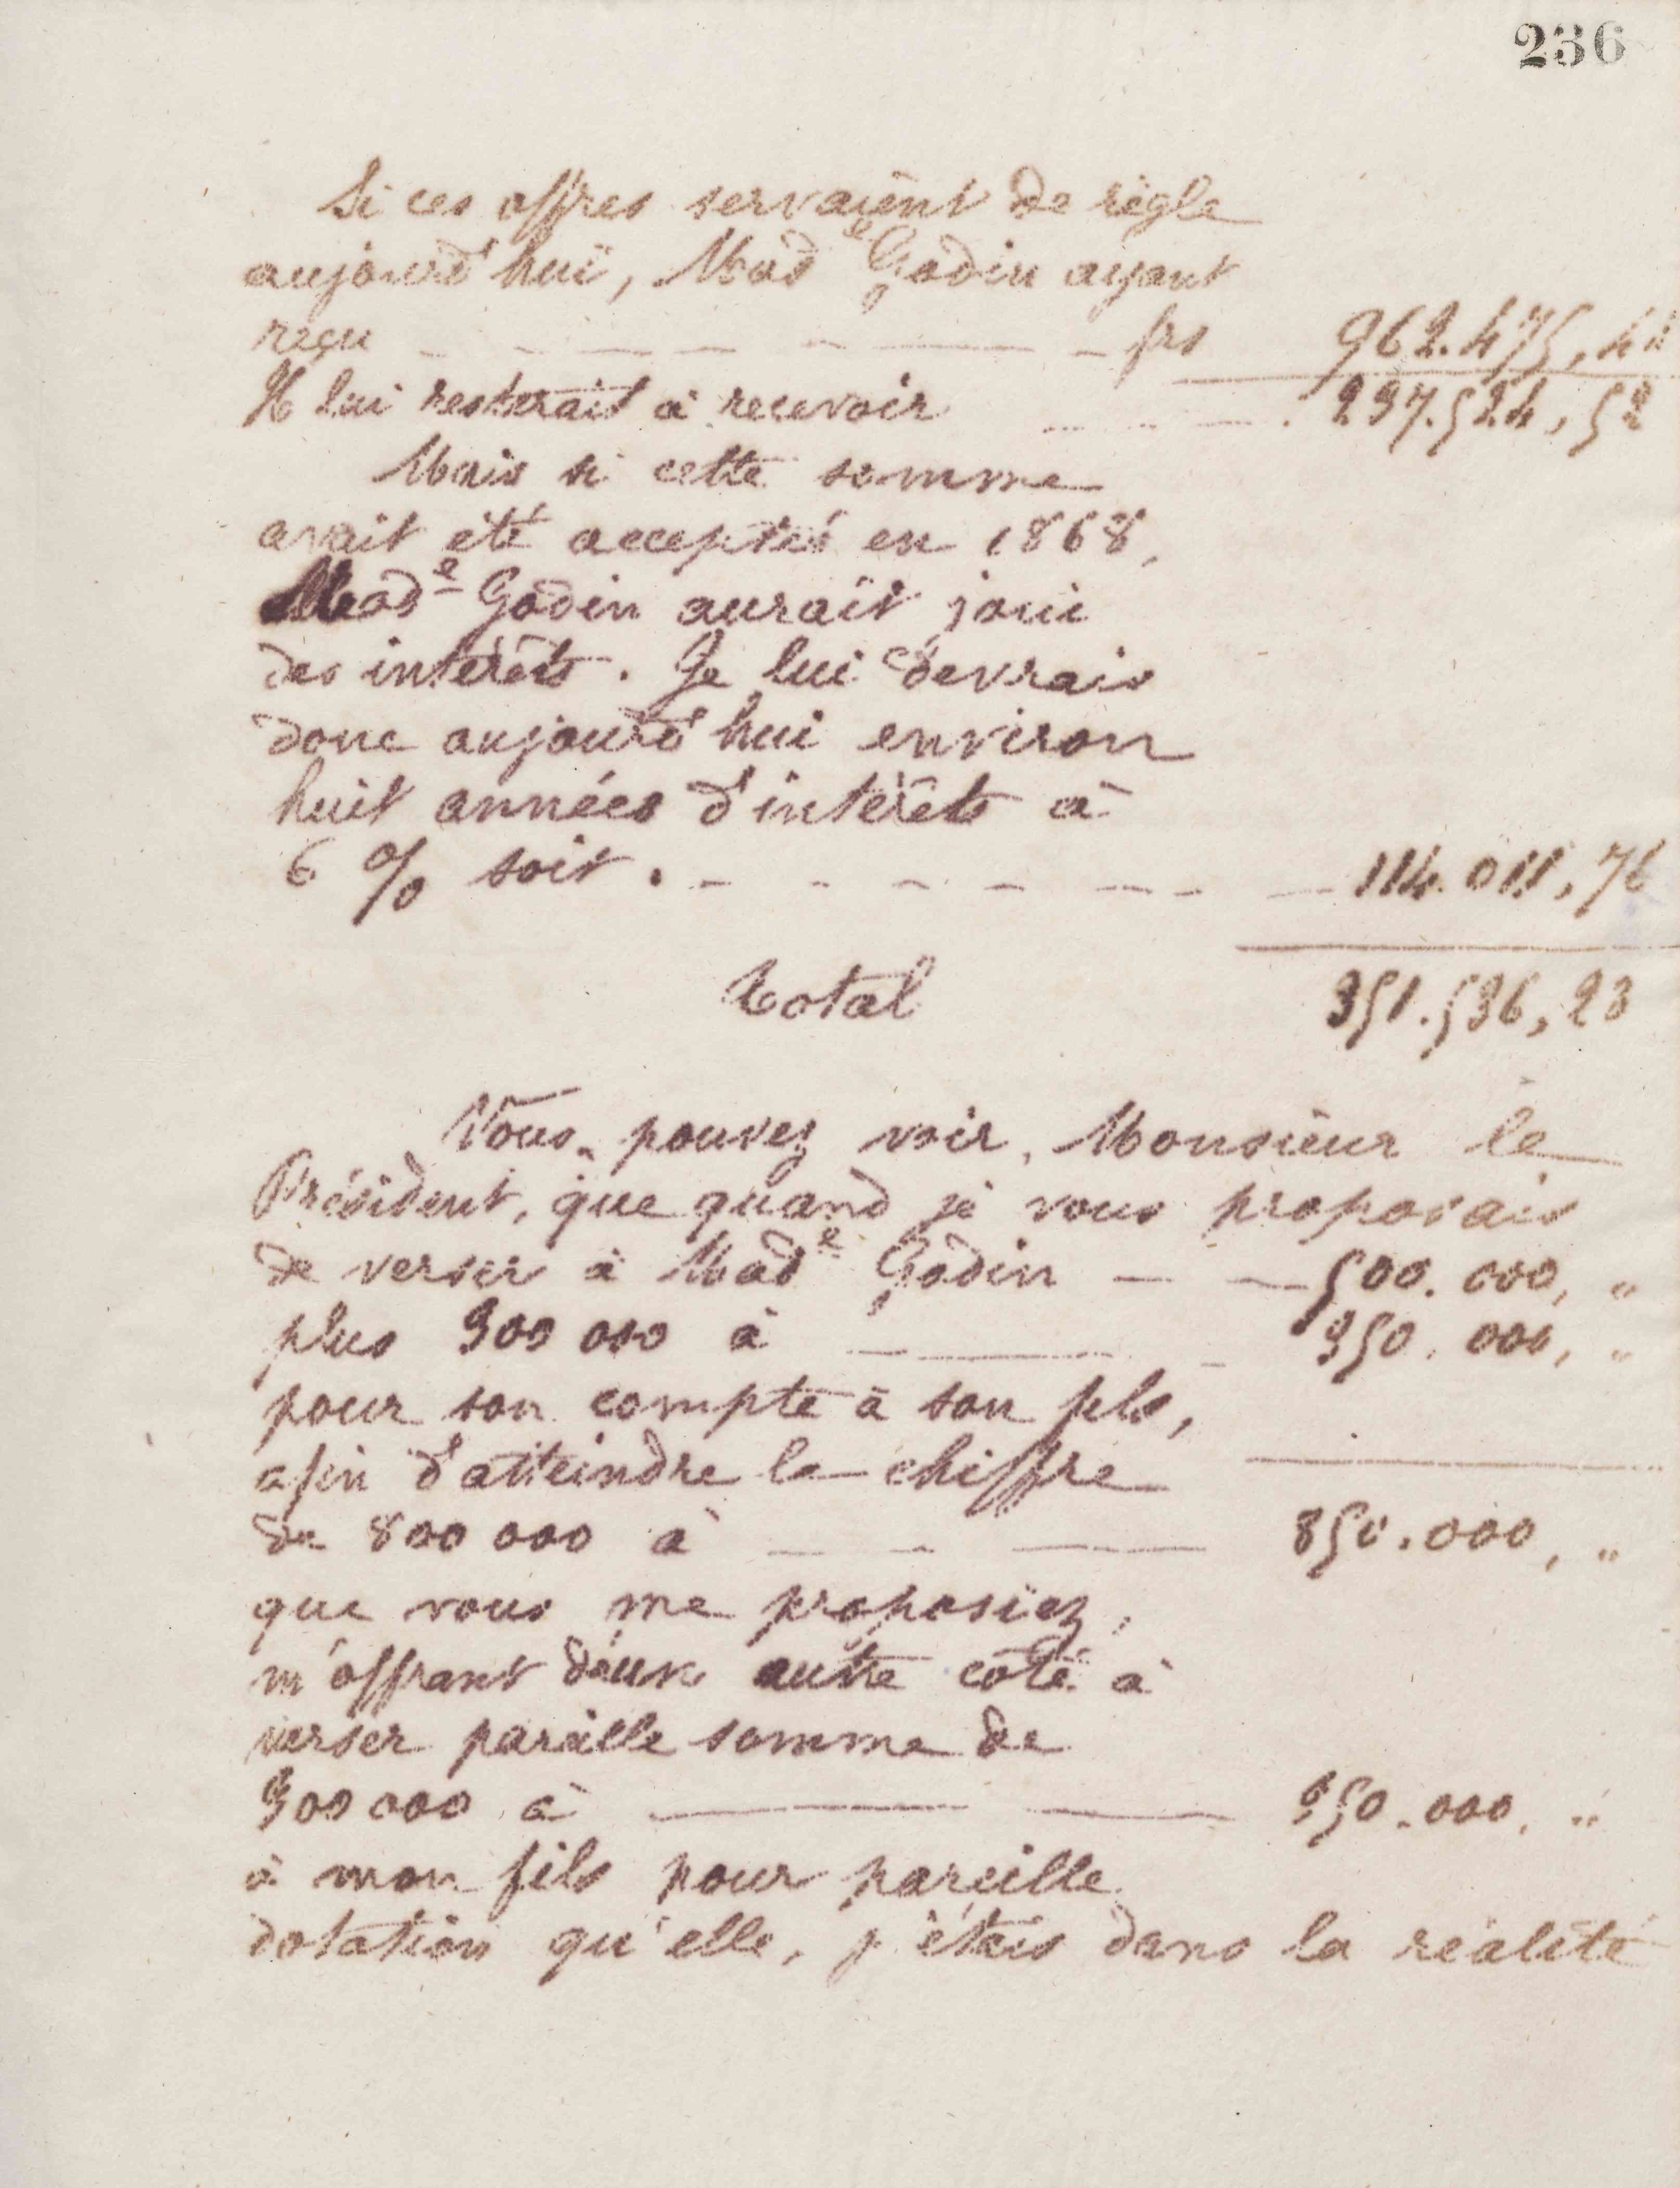 236
Si ces offres servaient de règle
aujourd'hui, Mad^e Godin ayant
reçu _ _ _ _ _ _ frs 962.475,48
Il lui resterait à recevoir ... 237.524,52
Mais si cette somme
avait été acceptée en 1868,
Mad^e Godin aurait joui
des intérêts. Je lui devrais
donc aujourd'hui environ
huit années d'intérêts à
6 % soit . _ _ _ _ _ 114.011,76
Total 351.536,28
Vous pouvez voir, Monsieur le
Président, que quand je vous proposais
de verser à Mad^e Godin _ _ 500.000, "
plus 300 000 à _ _ _ 350.000, "
pour son compte à son fils,
afin d'atteindre le chiffre
de 800 000 à _ _ _ 850.000, "
que vous me proposiez,
m'offrant d'un autre côté à
verser pareille somme de
300 000 à _ _ 350.000, "
à mon fils pour pareille
dotation qu'elle, j'étais dans la réalité